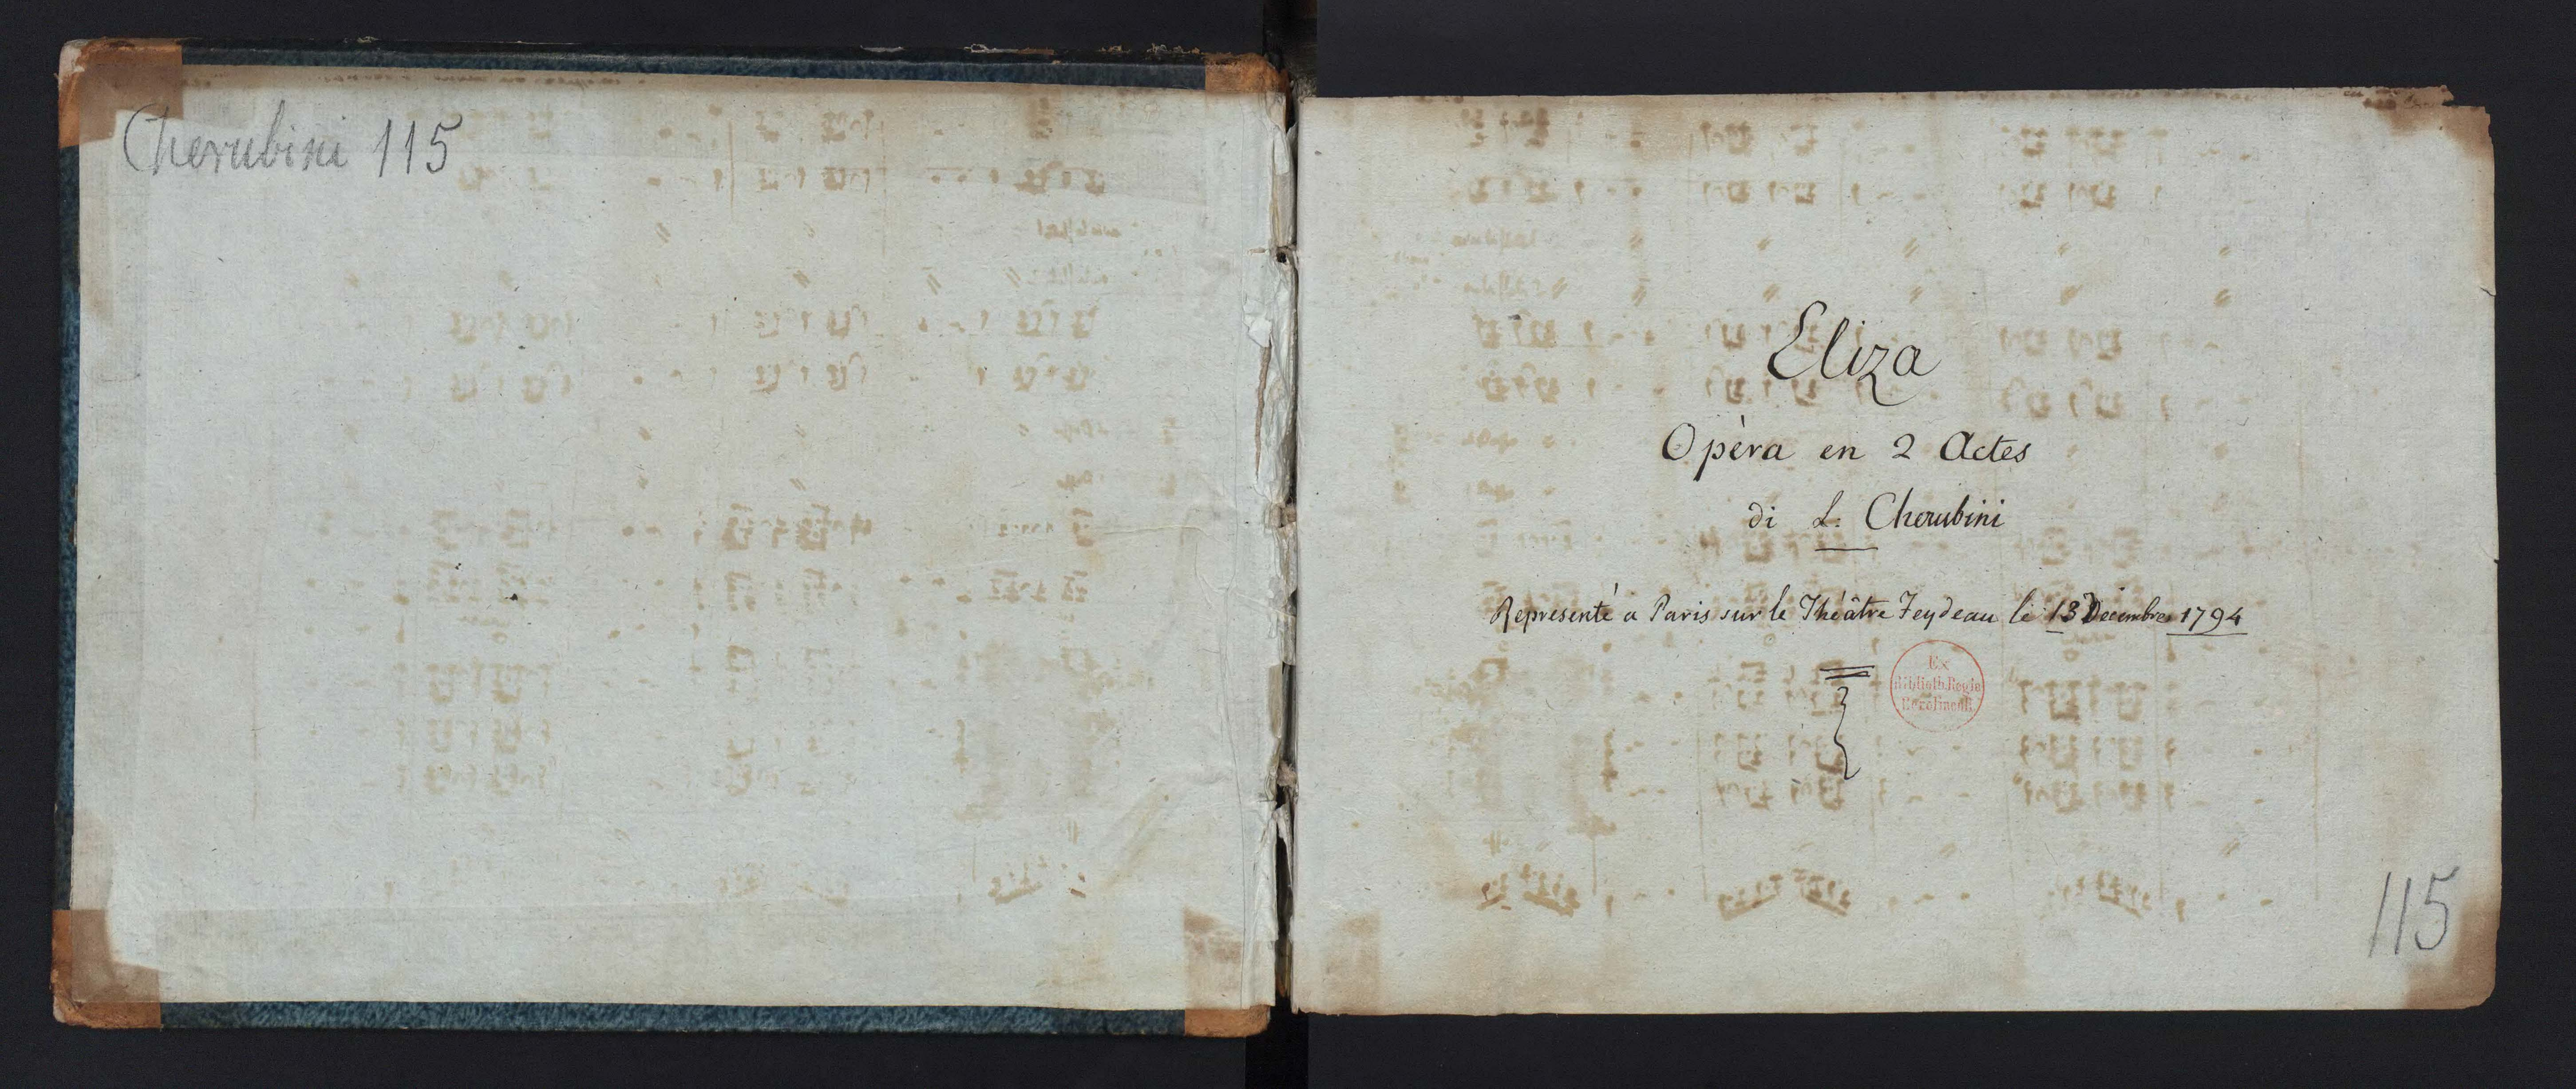 Cherubini 115
Eliza
Opèra en 2 Actes
di L. Cherubini
Representé a Paris sur le Théâtre Feydeau le 13 Decembre 1794
Ex
Biblioth. Regia
Berolinensi.
115